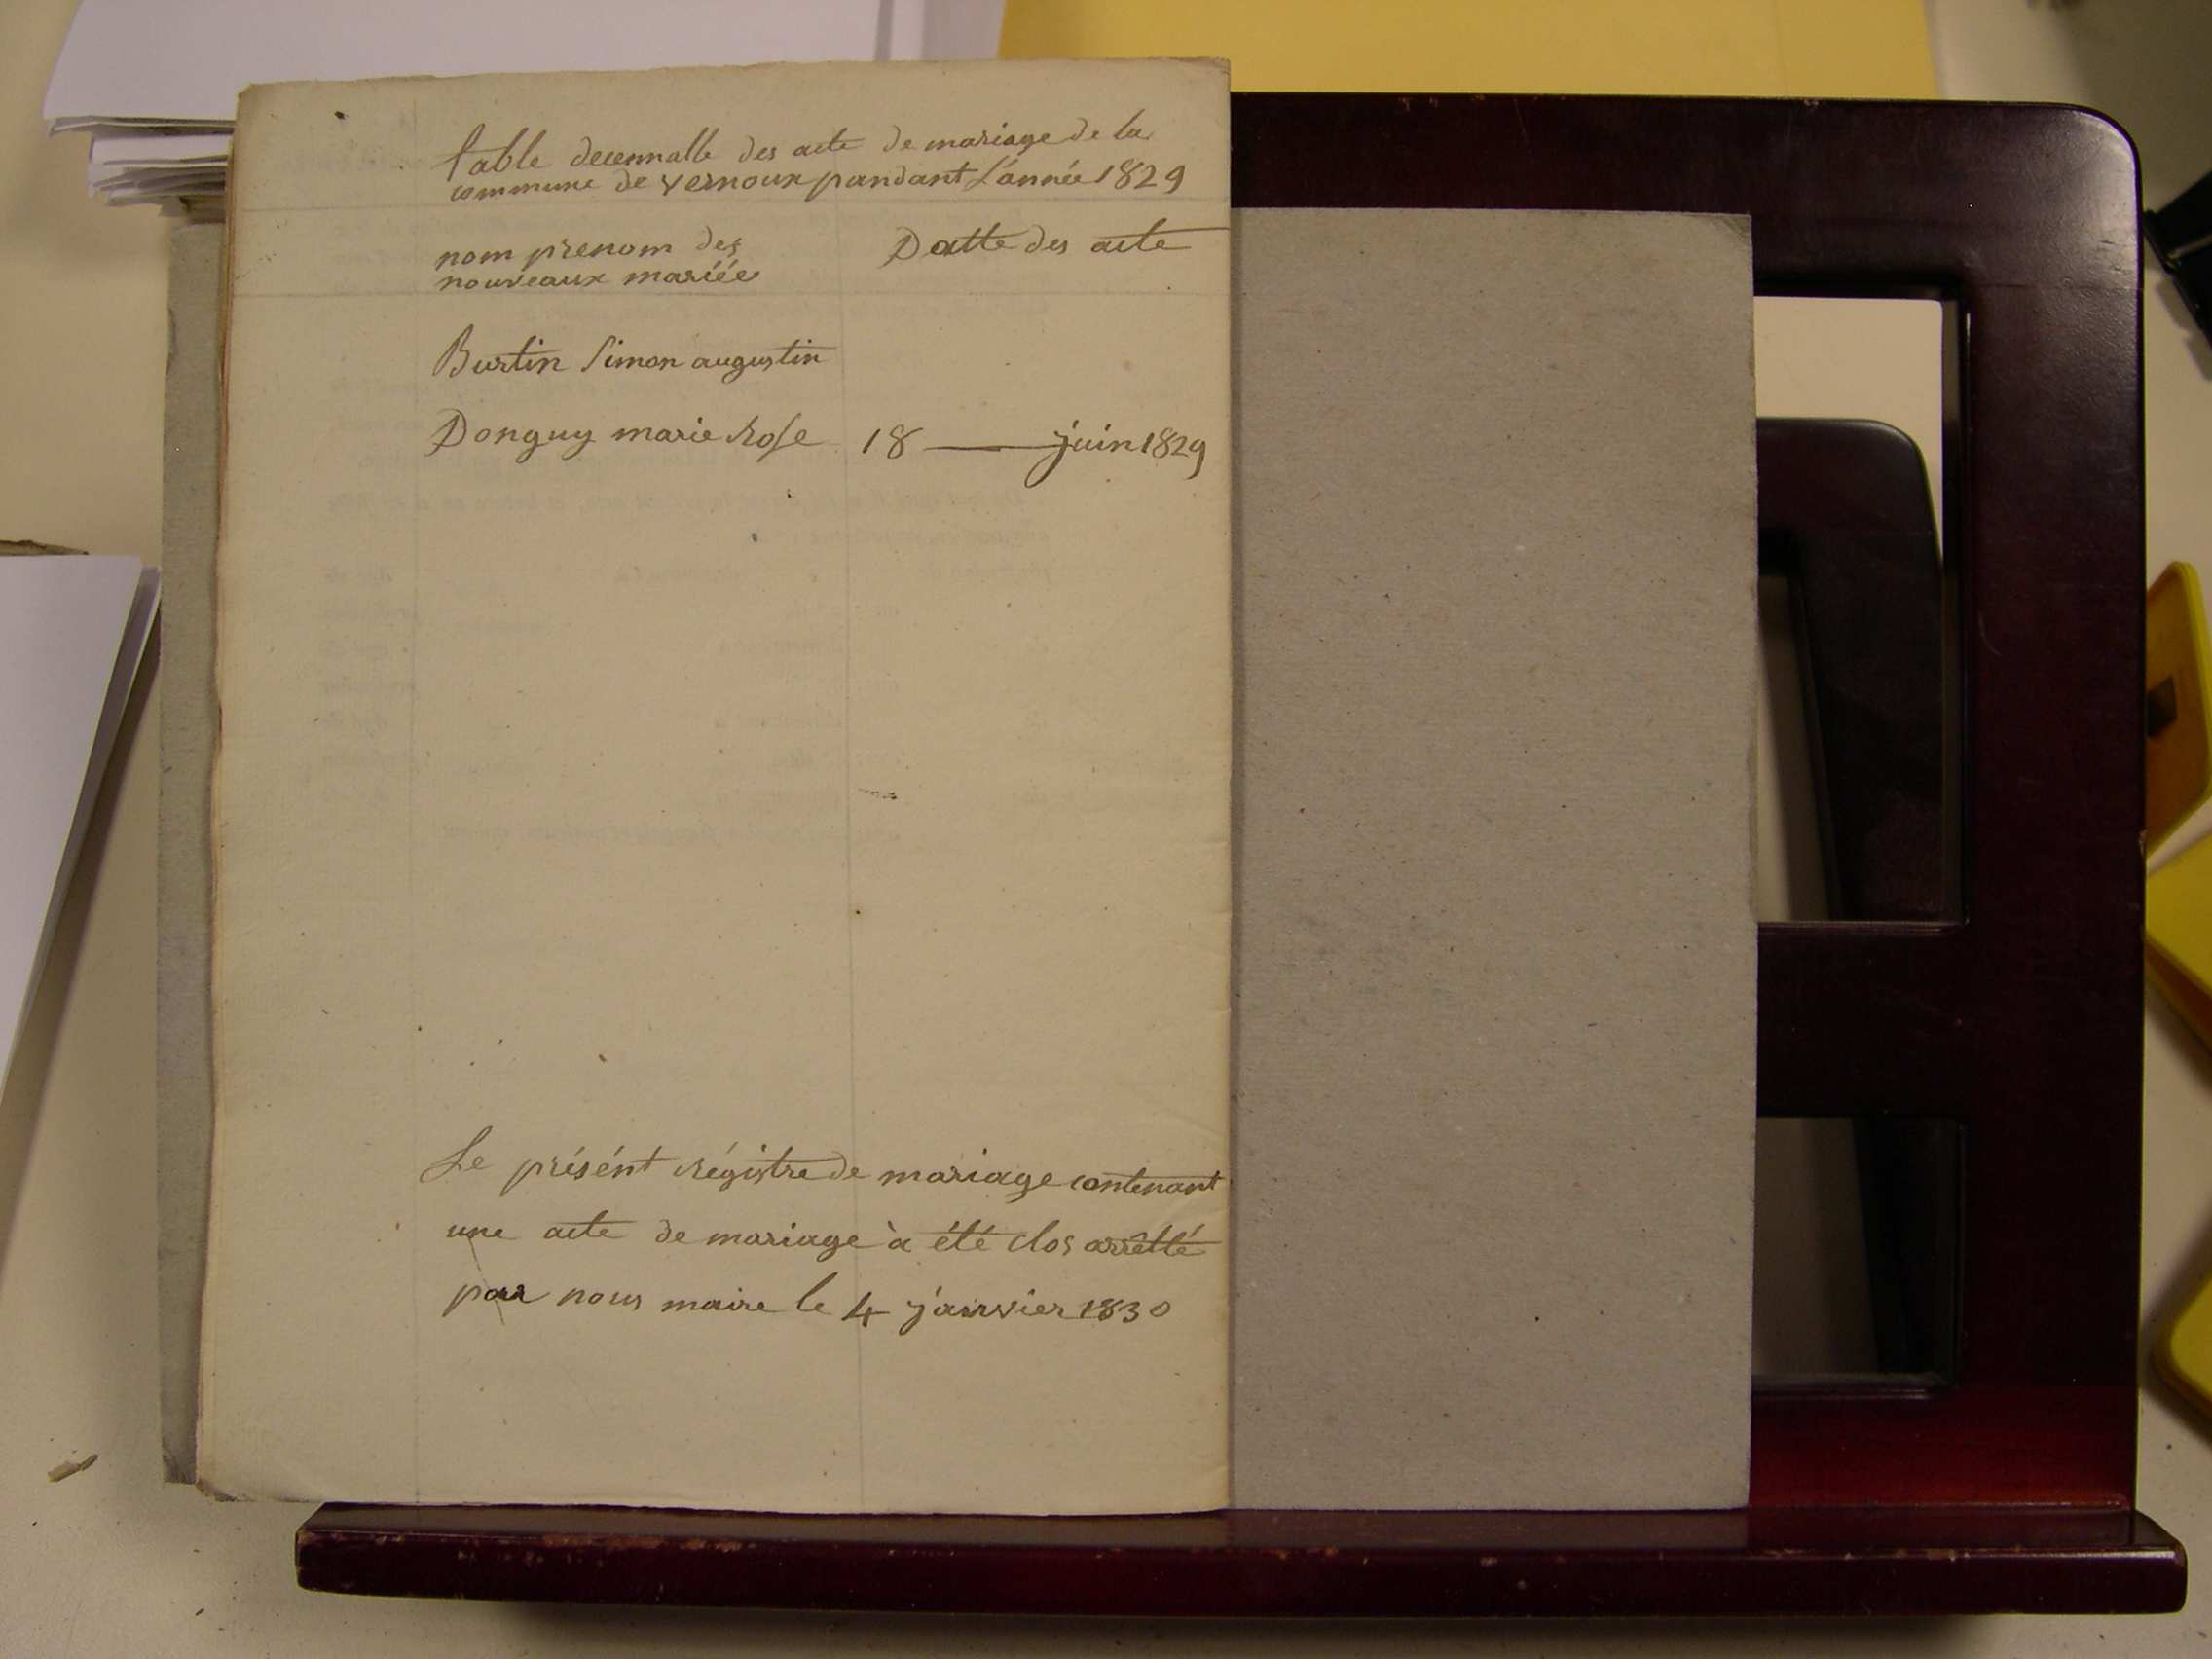 table decennalle des acte de mariage de la
commune de vernoux pandant L'année 1829
nom prenom des
nouveaux mariéé
Datte des acte
Burtin Simon augustin
Donguy marie Rose 18 — juin 1829
Le présént régistre de mariage contenant
une acte de mariage à été clos arrêtté
par nous maire le 4 janvier 1830